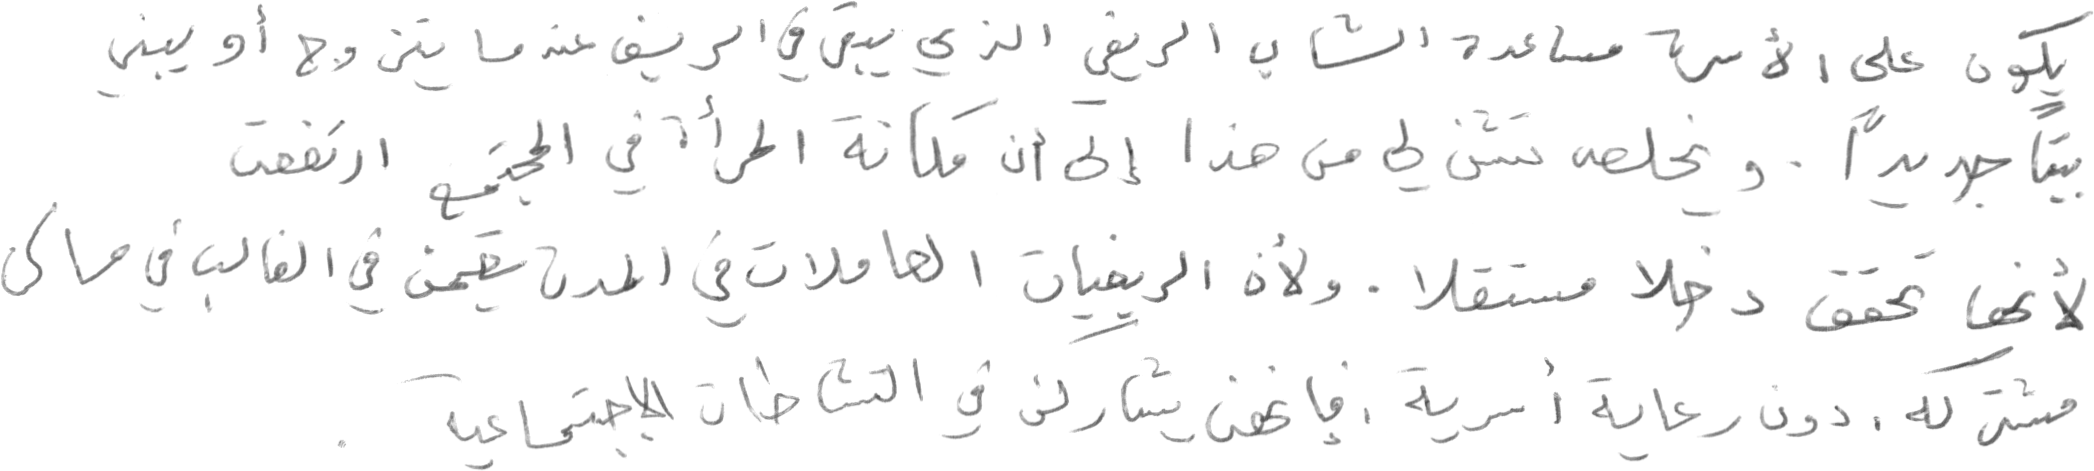 يكون على الأسرة مساعدة الشاب الريفي الذي يبقى في الريف عندما يتزوج أو يبني
بيتًا جديدًا . ويخلص تشن لي من هذا إلى أن مكانة المرأة في المجتمع ارتفعت
لأنها تحقق دخلا مستقلا . ولأن الريفيات العاملات في المدن يقمن في الغالب في مساكن
مشتركة ، دون رعاية أسرية ، فإنهن يشاركن في النشاطات الاجتماعية .